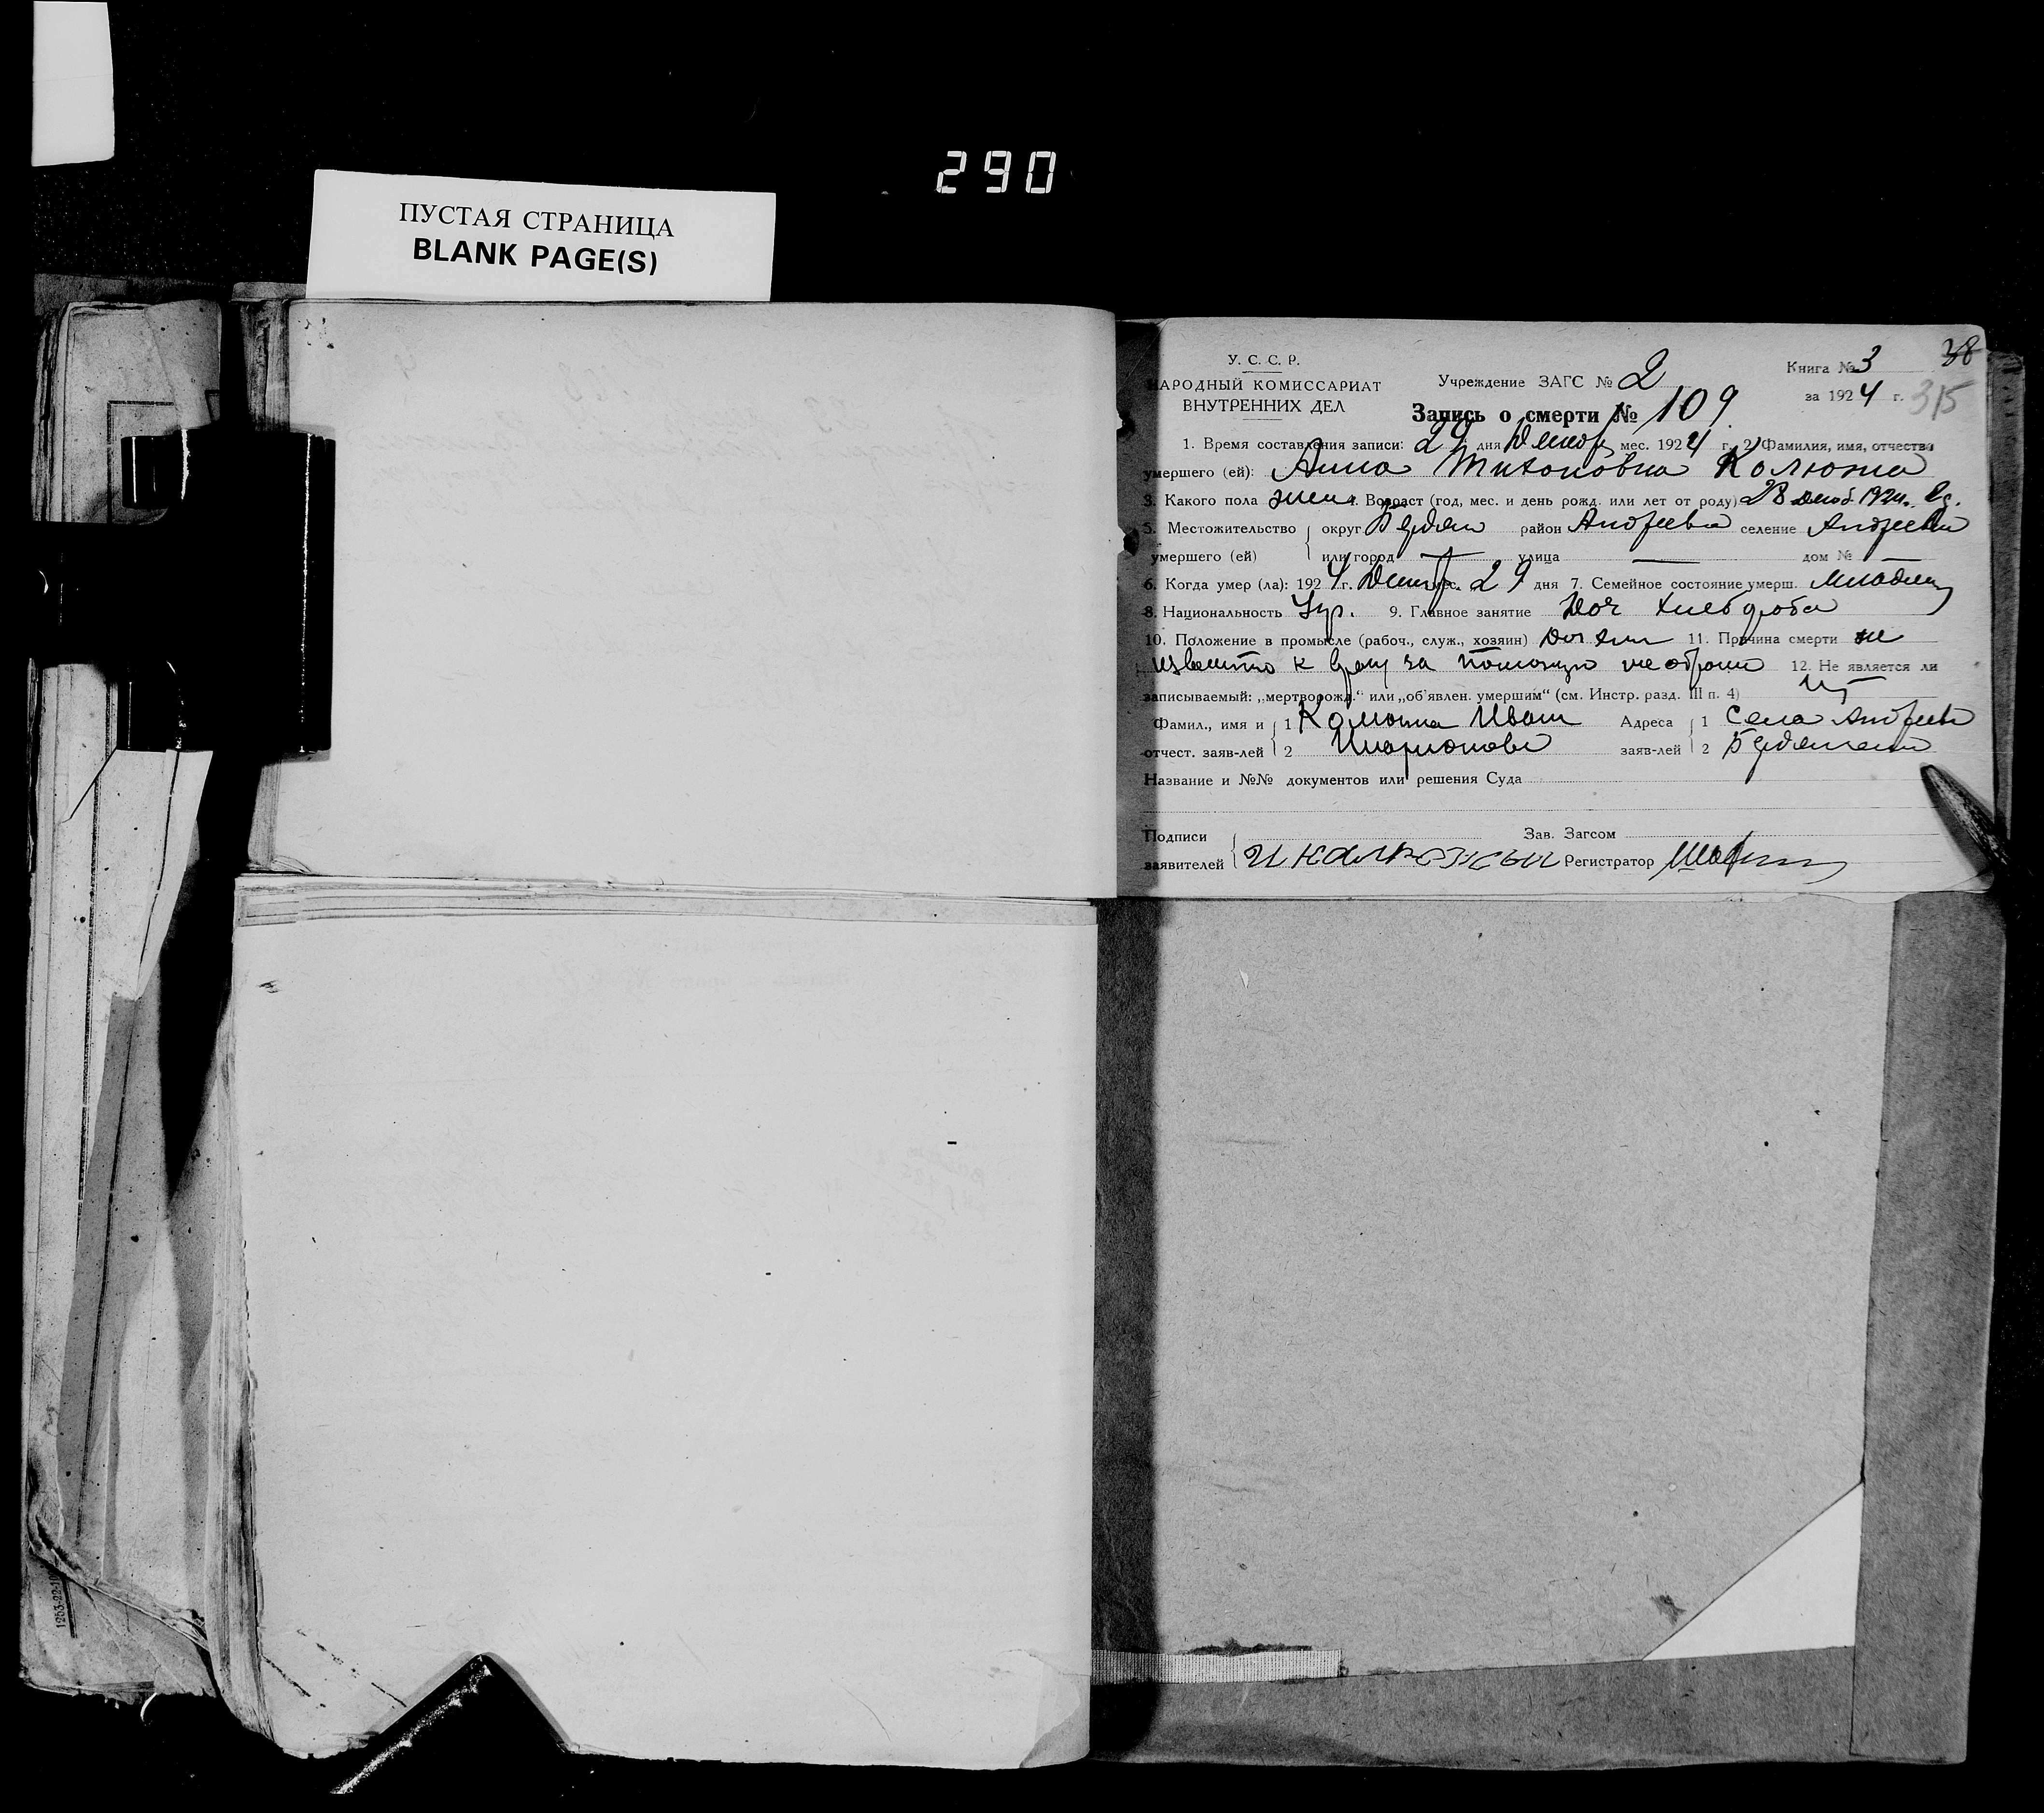 290
ПУСТАЯ СТРАНИЦА
BLANK PAGE(S)
У. С. С. Р.
НАРОДНЫЙ КОМИССАРИАТ
ВНУТРЕННИХ ДЕЛ
Учреждение ЗАГС № 2
Книга № 3
38
за 1924 г.
315
Запись о смерти № 109
1. Время составления записи: 29 дня Декоб мес. 1924 г. 2. Фамилия, имя, отчество
умершего (ей): Анна Тихоновна Колюжна
3. Какого пола жен 4. Возраст (год, мес. и день рожд. или лет от роду) 28 Декоб. 1924.
5. Местожительство округ Бердян район Андреевка селение Андреевка
умершего (ей) или город — улица — дом № —
6. Когда умер (ла): 1924 г. мес. 29 дня 7. Семейное состояние умерш. младенец
8. Национальность Укр. 9. Главное занятие Доч хлебороба
10. Положение в промысле (рабоч., служ., хозяин) 11. Причина смерти не
известно к врачу за помощью не обращ 12. Не является ли
записываемый: „мертворожд.“ или „об'явлен. умершим“ (см. Инстр. разд. III п. 4) нет
Фамил., имя и 1 Колюжна Иван Адреса 1 Села Андреевк
отчест. заяв-лей 2 Иларионова заяв-лей 2 Бердянского
Название и №№ документов или решения Суда
Подписи Зав. Загсом
заявителей И Калюжный Регистратор
1253-22-10